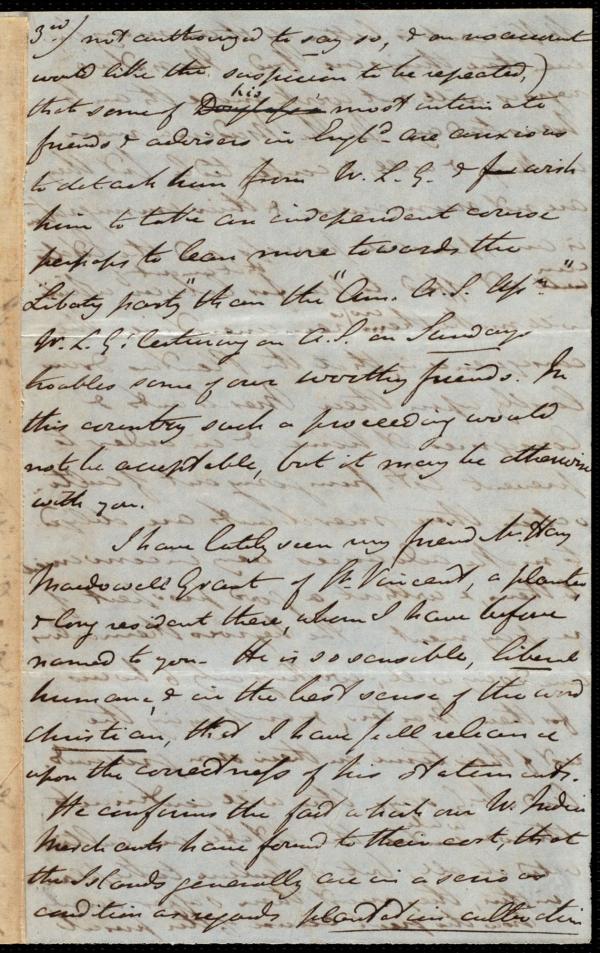 3rd) not authorized to say so, & on no account
would like the suspicion to be repeated,)
that some of his Douglass's most intimate
friends & advisers in Engld. are anxious
to detach him from W. L. G. & wish
him to take an independent course
perhaps to lean more towards the
"Liberty party" than the "Am. A. S. Assn."
W. L. G's lecturing on A. S. on Sundays
troubles some of our worthy friends. In
this country such a proceeding would
not be acceptable, but it may be otherwise
with you.
I have lately seen my friend Mr. Hay
Macdowell Grant of St. Vincent, a planter
& long resident there, whom I have before
named to you. He is so sensible, liberal
humane, & in the best sense of the word
christian, that I have full reliance
upon the correctness of his statements.
He confirms the fact which our W. India
Merchants have found to their cost, that
the Islands generally are in a serious
condition as regards plantation cultivation